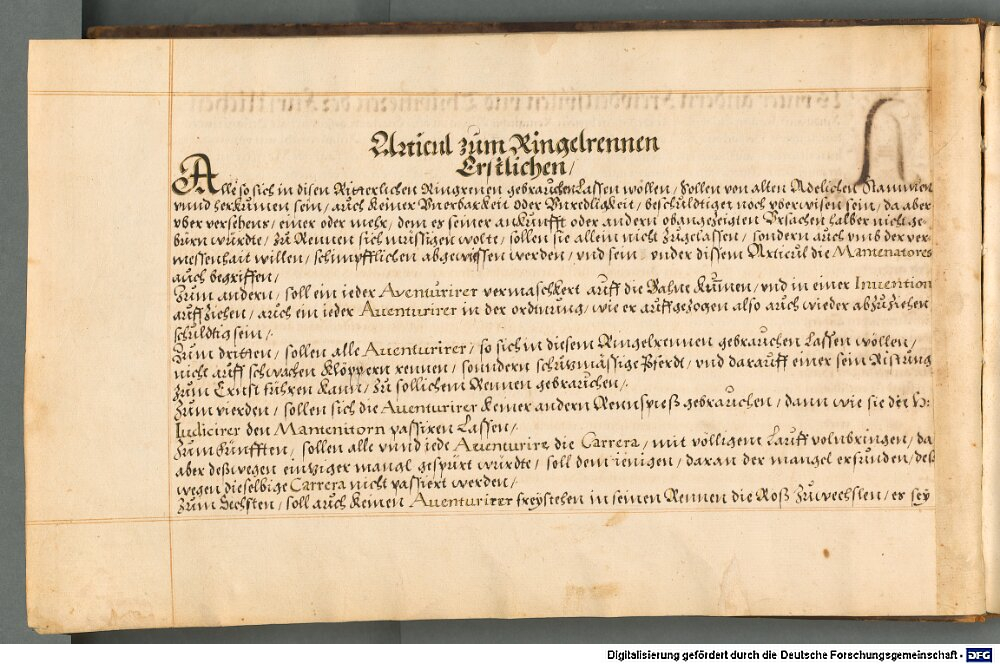 Articul zum Ringelrennen
Erstlichen /
Alle so sich in disen Ritterlichen Ringrenen gebrauchen Lassen wöllen / sollen von alten Adelichen Stammen
vnnd herkumen sein / auch keiner Vnerbarkeit oder Vnredligkeit / beschuldiget noch vberwisen sein / da aber
vber versehens / einer oder mehr / dem es seiner ankunfft oder andern obangezeigten Vrsachen halber nicht ge-
büren würdte / zu Rennen sich müssigen wolt / sollen sie allein nicht zugelassen / sondern auch vmb der ver-
messenhait willen / schimpfflichen abgewiessen werden / vnd sein vnder dissem Articul die Mantenatores
auch begriffen /
Zum andern / soll ein ieder Aventurirer vermaschkert auff die Bahne kumen / vnd in einer Inuention
auff ziehen / auch ein ieder Auenturirer in der ordnung / wie er auffgezogen also auch wieder abzuziehen
schuldig sein /
Zum dritten / sollen alle Auenturirer / so sich in diesem Ringelrennen gebrauchen Lassen wöllen /
nicht auff schwachen Klöppern rennen / sondern schützmässige Pferdt / vnd darauff einer sein Ristung
zum Ernst führen kann / zu sollichem Rennen gebrauchen /
Zum vierden / sollen sich die Auenturirer keiner andern Rennspieß gebrauchen / dann wie sie der H:
Iudicirer den Mantenitorn passiren Lassen /
Zum fünfften / sollen alle vnnd iede Aventurire die Carrera / mit völligem Lauff volnbringen / da
aber deßwegen einziger mangl gespürt würdte / soll dem ienigen / daran der mangel erfunden / deß
wegen dieselbige Carrera nicht passiert werden /
Zum Sechsten / soll auch keinen Auenturirer freystehen in seinen Rennen die Roß zuwechslen / es sey
Digitalisierung gefördert durch die Deutsche Forschungsgemeinschaft - DFG